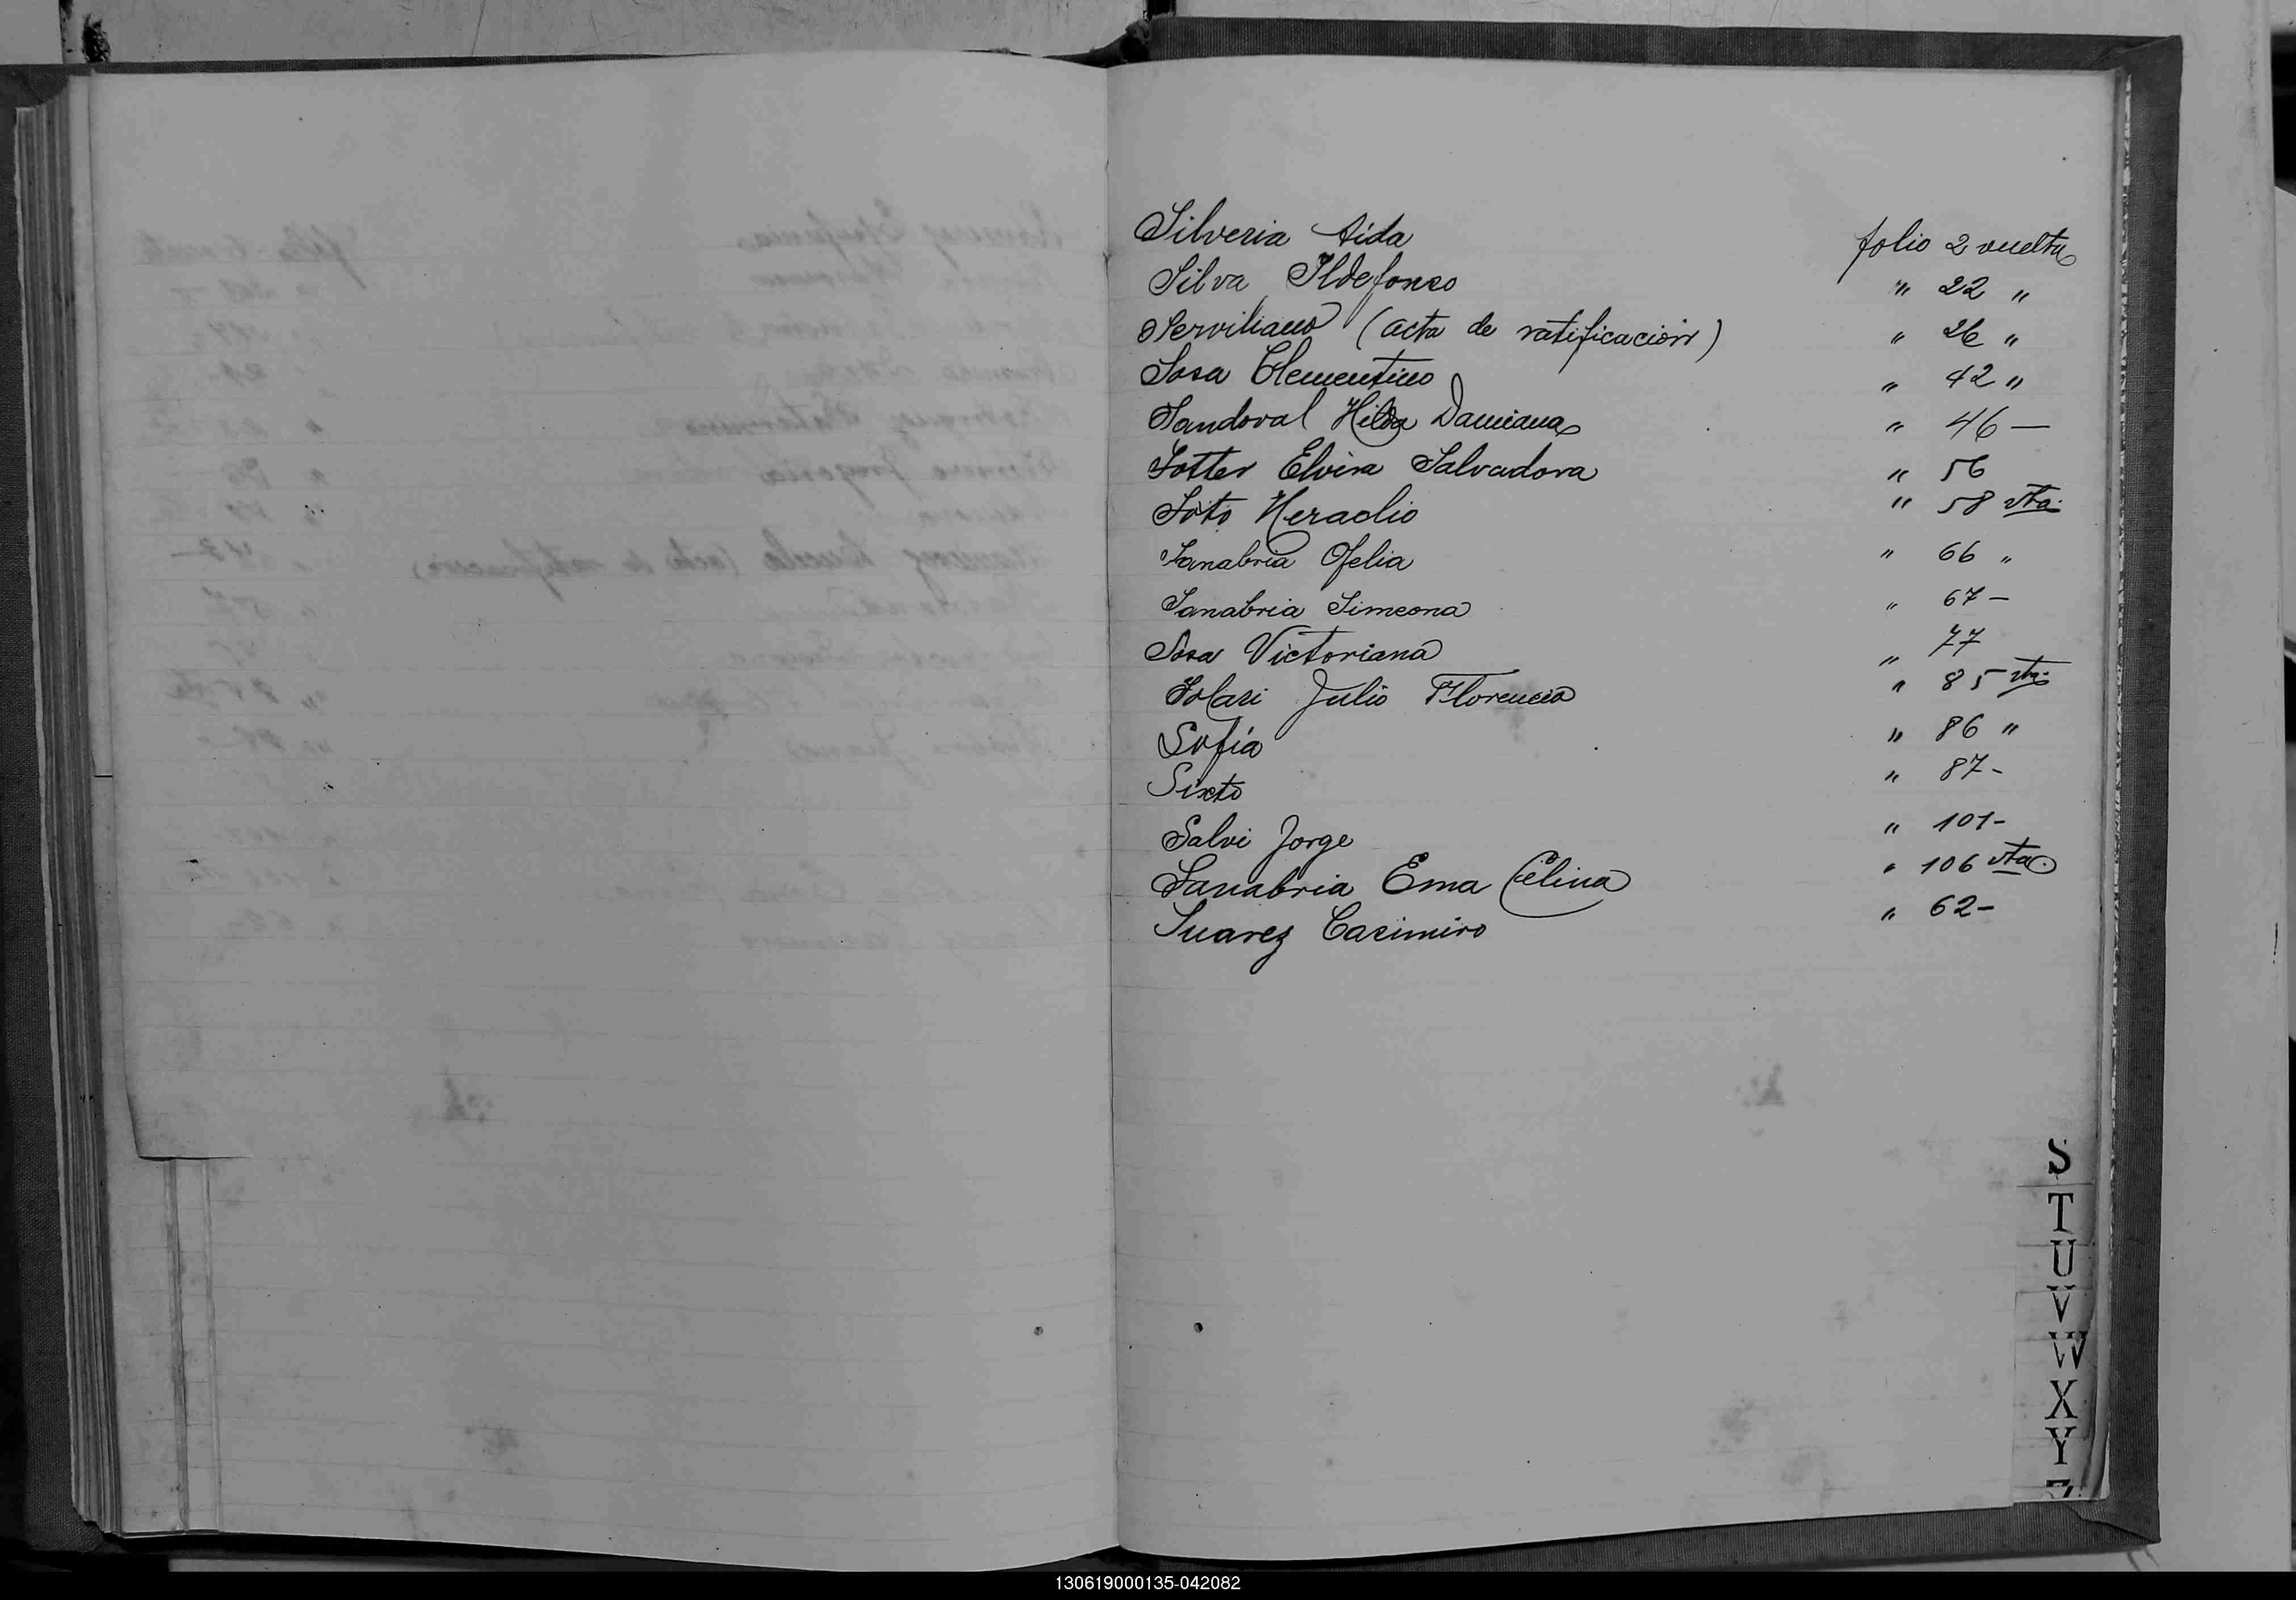 Silveria Aida folio 2 vuelta
Silva Ildefonso " 22 "
Serviliano (acta de ratificación) " 26 "
Sosa Clementino " 42 "
Sandoval Hilda Damiana " 46 —
Sotter Elvira Salvadora " 56
Soto Heraclio " 58 vta.
Sanabria Ofelia " 66 "
Sanabria Simeona " 67 –
Sosa Victoriana " 77
Solari Julio Florencio " 85 vta.
Sofía " 86 "
Sixto " 87 -
Salvi Jorge " 101 -
Sanabria Ema Celina " 106 vta.
Suarez Casimiro " 62 –
S
T
U
V
W
X
Y
Z
130619000135-042082